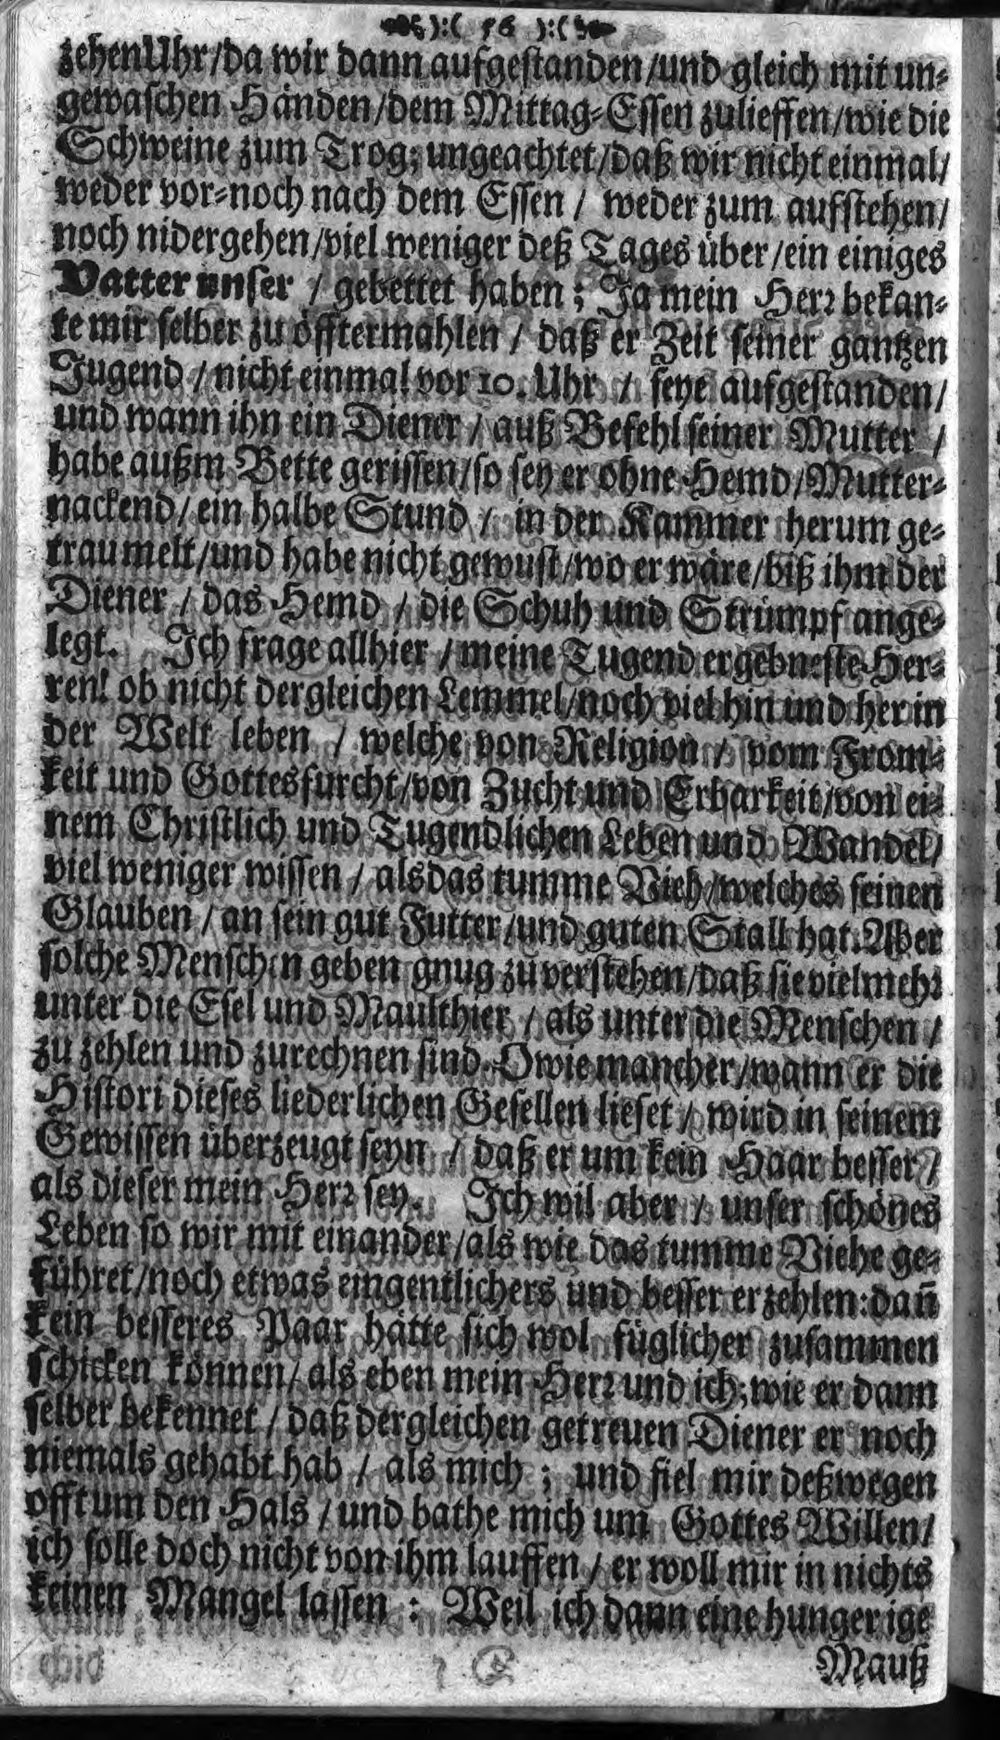 ):( 56 ):(
zehen Uhr / da wir dann aufgestanden / und gleich mit un-
gewaschen Händen / dem Mittag-Essen zulieffen / wie die
Schweine zum Trog; ungeachtet / daß wir nicht einmal /
weder vor-noch nach dem Essen / weder zum aufstehen /
noch nidergehen / viel weniger deß Tages über / ein einiges
Vatter unser / gebettet haben; Ja mein Herr bekan-
te mir selber zu öfftermahlen / daß er Zeit seiner gantzen
Jugend / nicht einmal vor 10. Uhr / seye aufgestanden /
und wann ihn ein Diener / auß Befehl seiner Mutter /
habe außm Bette gerissen / so sey er ohne Hemd / Mutter-
nackend / ein halbe Stund / in der Kammer herum ge-
traumelt / und habe nicht gewust / wo er wäre / biß ihm der
Diener / das Hemd / die Schuh und Strümpf ange-
legt. Ich frage allhier / meine Tugend ergebneste Her-
ren! ob nicht dergleichen Lemmel / noch viel hin und her in
der Welt leben / welche von Religion / vom From-
keit und Gottesfurcht / von Zucht und Erbarkeit / von ei-
nem Christlich und Tugendlichen Leben und Wandel /
viel weniger wissen / als das tumme Vieh / welches seinen
Glauben / an sein gut Futter / und guten Stall hat. Aber
solche Menschen geben gnug zu verstehen / daß sie vielmehr
unter die Esel und Maulthier / als unter die Menschen /
zu zehlen und zurechnen sind. O wie mancher / wann er die
Histori dieses liederlichen Gesellen lieset / wird in seinem
Gewissen überzeugt seyn / daß er um kein Haar besser /
als dieser mein Herr sey. Ich wil aber / unser schönes
Leben so wir mit einander / als wie das tumme Viehe ge-
führet / noch etwas eingentlichers und besser erzehlen: dañ
kein besseres Paar hätte sich wol füglicher zusammen
schicken können / als eben mein Herr und ich; wie er dann
selber bekennet / daß dergleichen getreuen Diener er noch
niemals gehabt hab / als mich; und fiel mir deßwegen
offt um den Hals / und bathe mich um Gottes Willen /
ich solle doch nicht von ihm lauffen / er woll mir in nichts
keinen Mangel lassen: Weil ich dann eine hungerige
Mauß